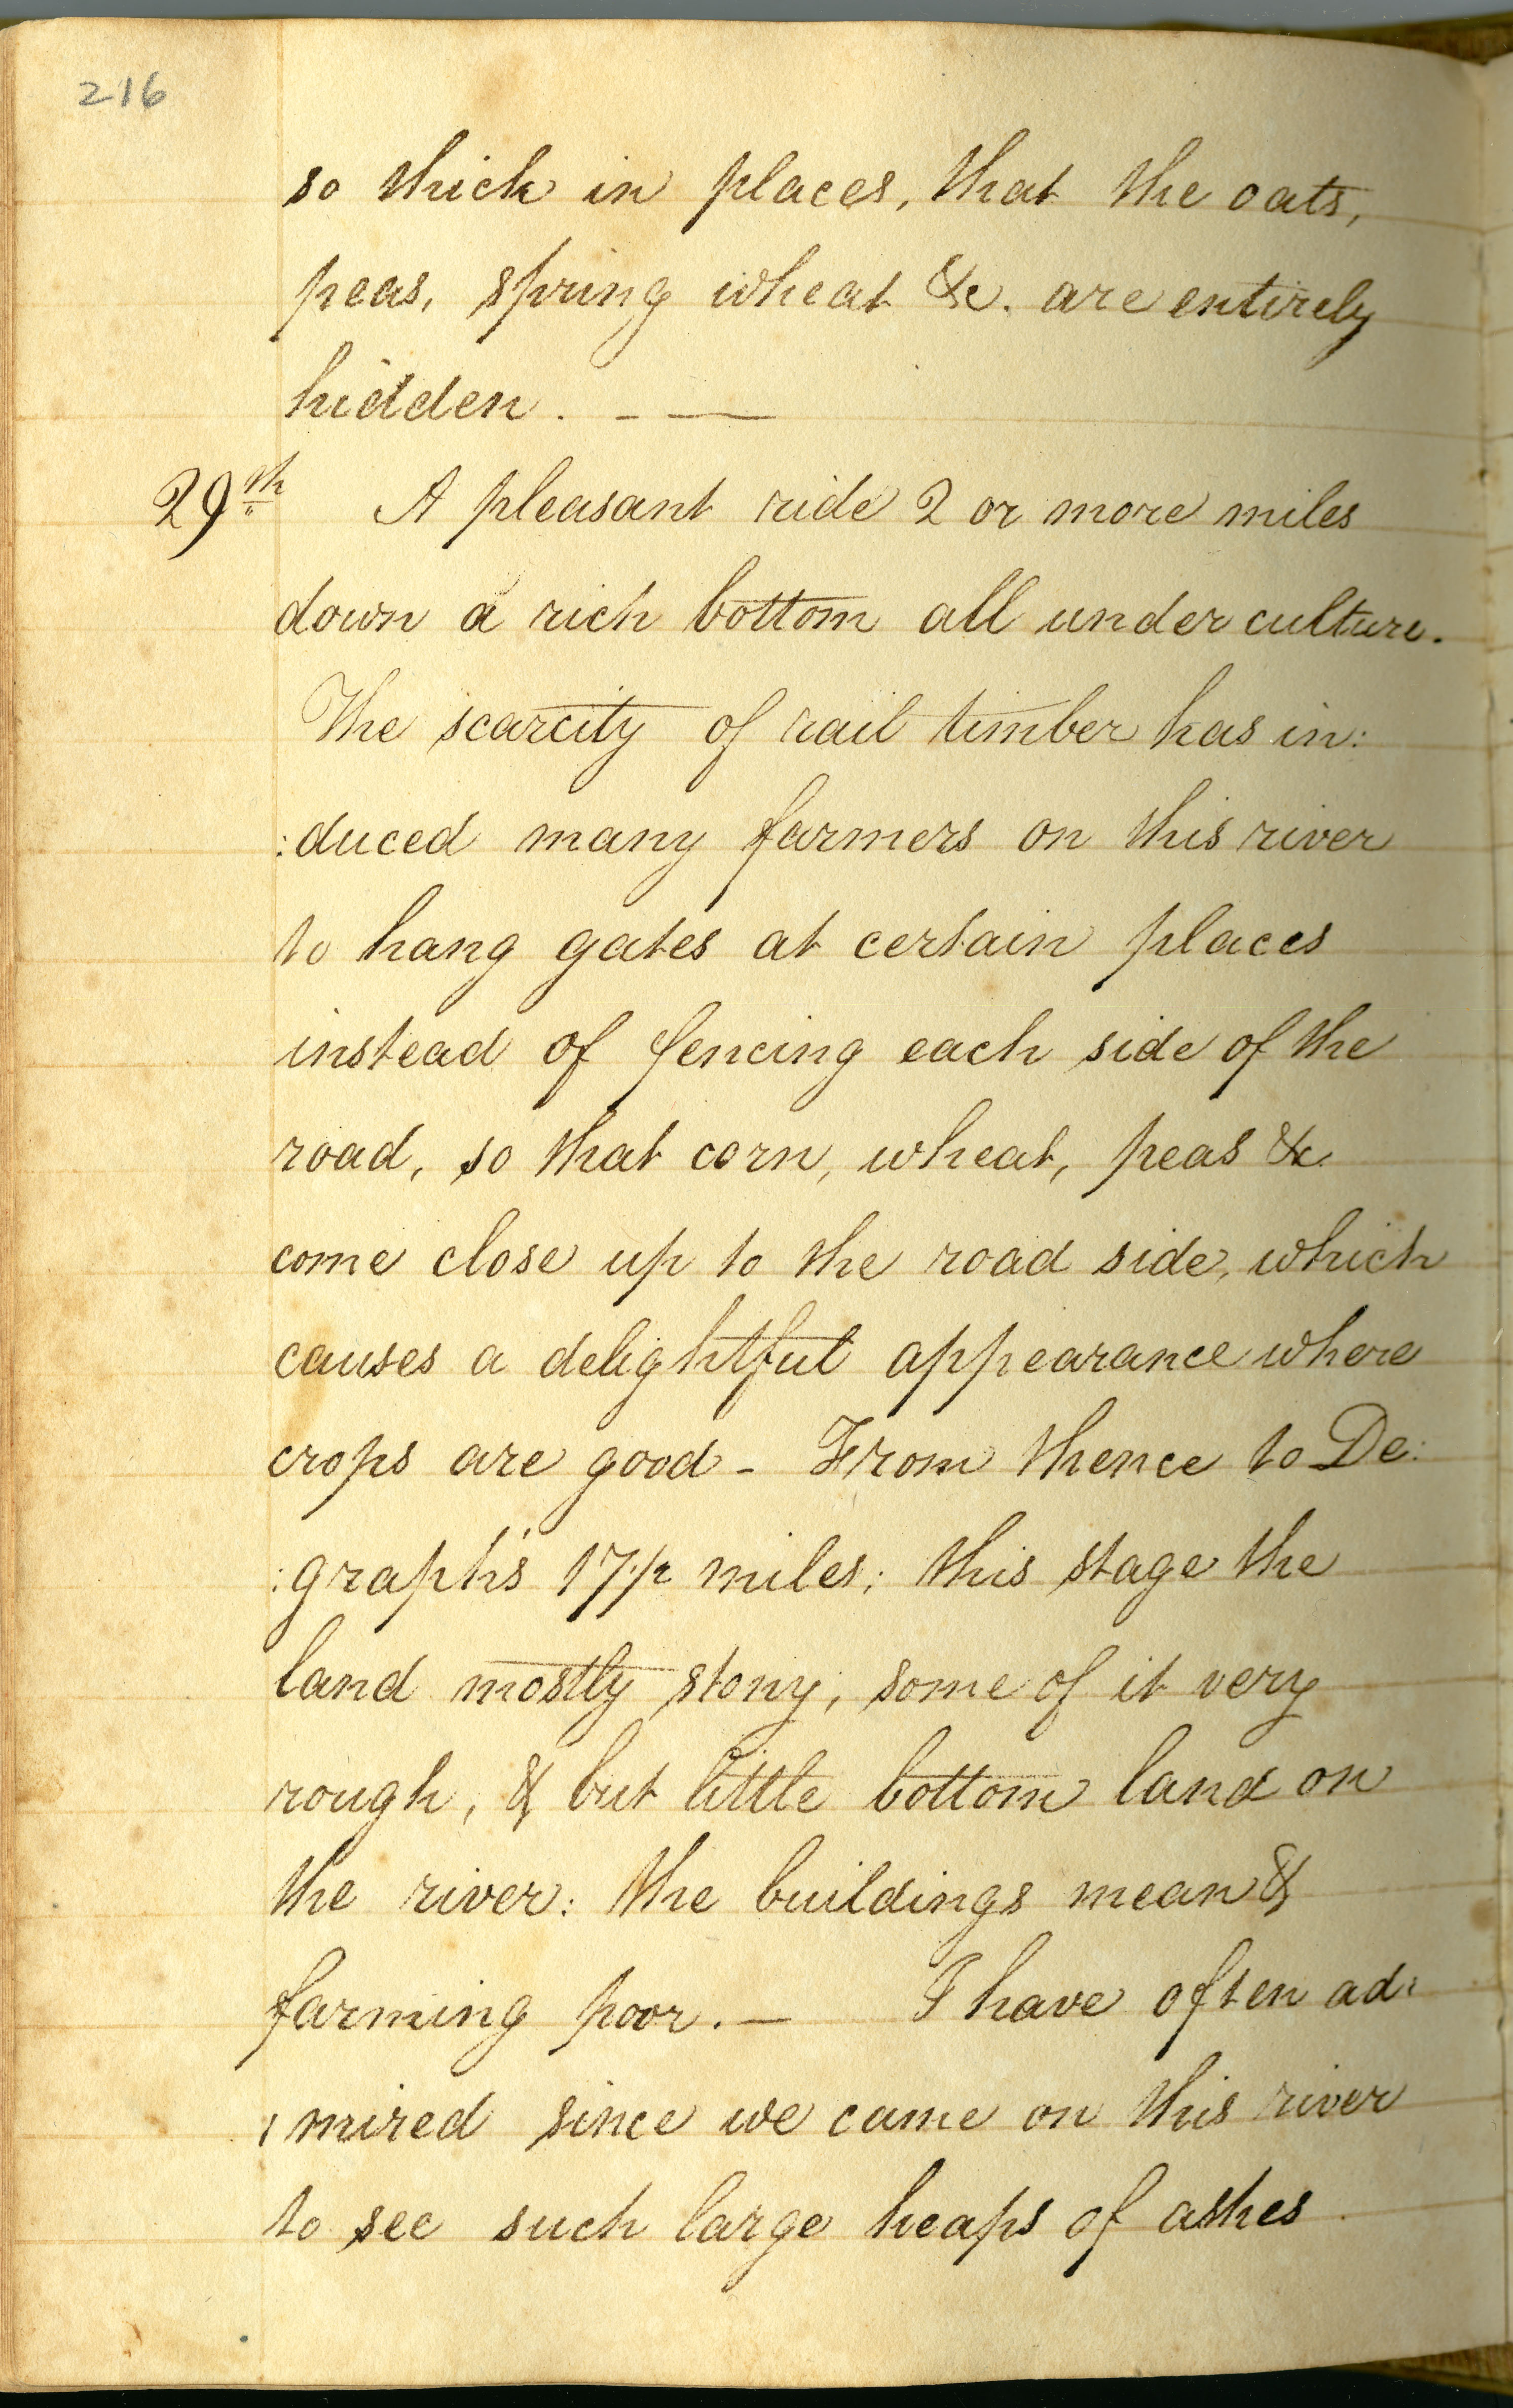 216
so thick in places, that the oats,
peas, spring wheat &c. are entirely
hidden. - —
29th A pleasant ride 2 or more miles
down a rich bottom all under culture.
The scarcity of rail timber has in:
:duced many farmers on this river
to hang gates at certain places
instead of fencing each side of the
road, so that corn, wheat, peas &c.
come close up to the road side, which
causes a delightful appearance where
crops are good - From thence to De:
:graph's 17½ miles; this stage the
land mostly stony, some of it very
rough, & but little bottom land on
the river: the buildings mean &
farming poor. — I have often ad:
:mired since we came on this river
to see such large heaps of ashes